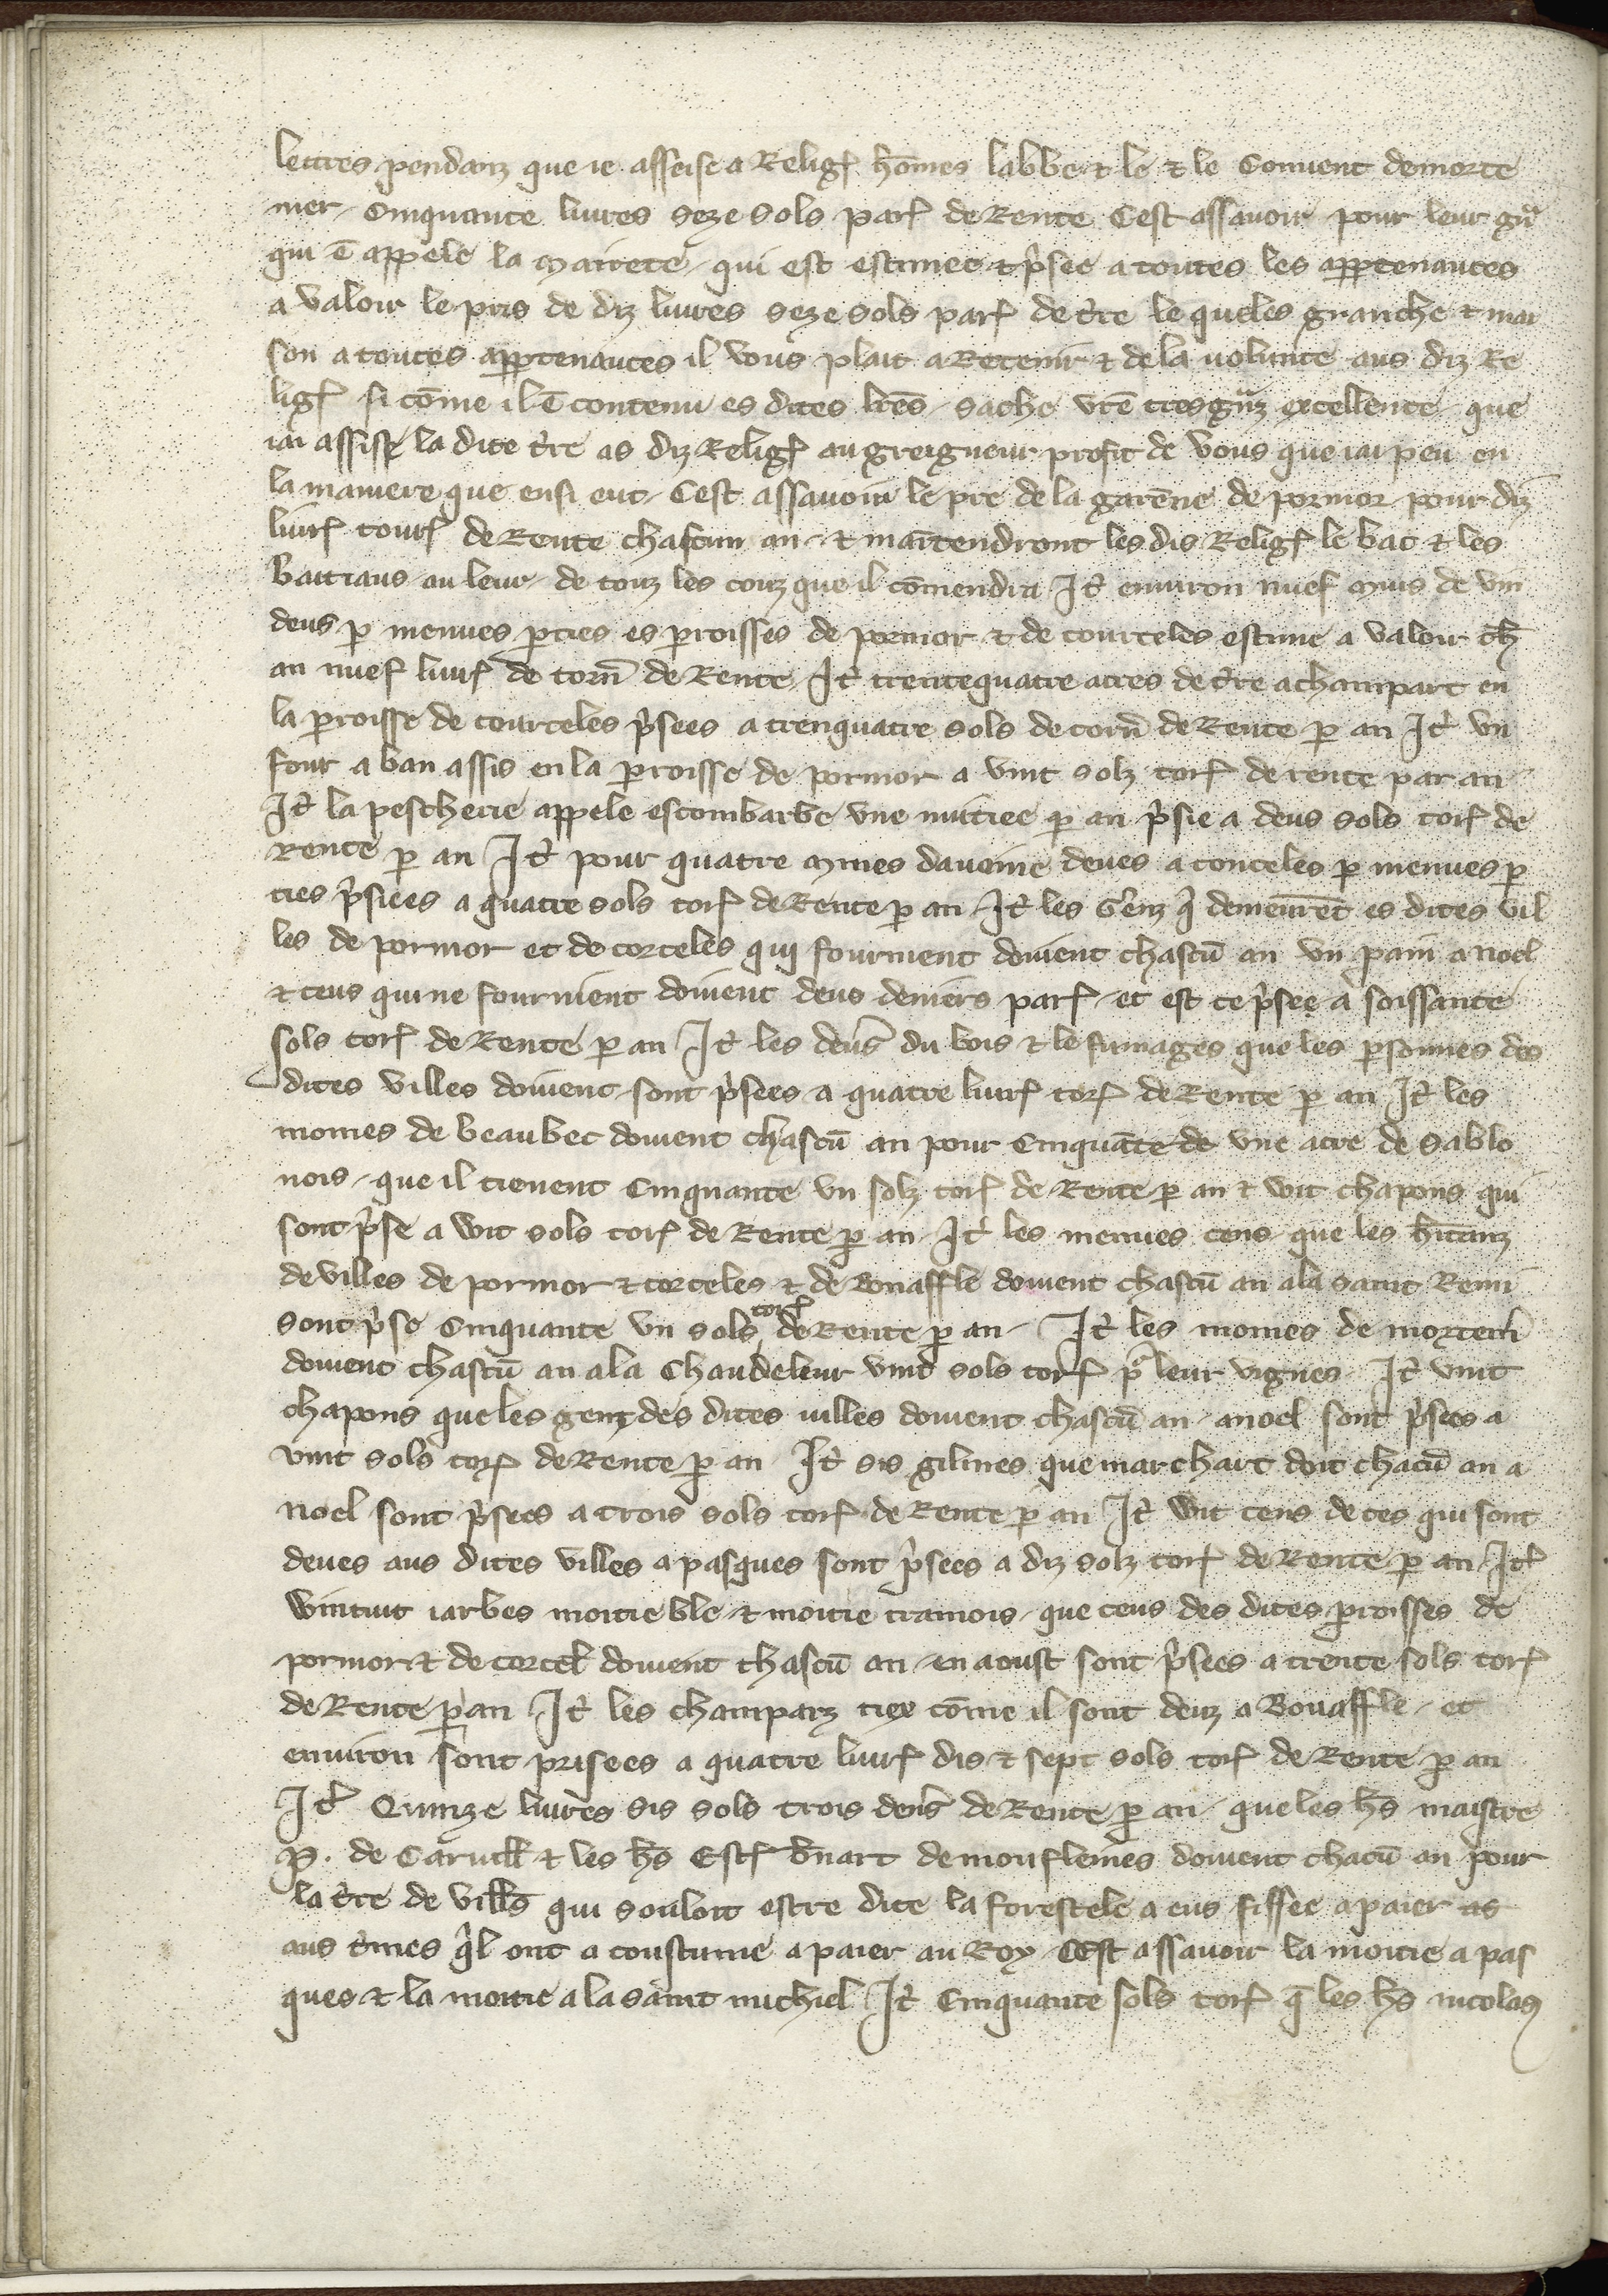 lettres pendanz que ie asseise a Religꝭ hōmes labbe ⁊ le ⁊ le Conuent demorte
mer Cinquante liures seze sols parꝭ de Rente Cest assauoir pour leur
qui ē appele la mairete qui est estimee ⁊ p̍see a toutes les appartenances
a valoir le pris de diz liures seze sols parꝭ de t̄re le queles granche ⁊ mai
son a toutes appartenances il vous plait a Retenir ⁊ de la uolunte aus diz Re
ligꝭ si cōme il ē contenu es dites lr̄es sache vr̄e tresgrāz excellence que
iai assise la dite t̄re as diz Religꝭ au greigneur profit de vous que iai peu en
la maniere que ensi eut Cest assauoir le pre de la garēne de pormor pour diz
liurꝭ tourꝭ de Rente chascun an ⁊ maītendront les dis Religꝭ le bac ⁊ les
de touz les couz que il cōmendra It̄ enuiron nuef muis de vin
deus p̱ menues p̱ties es p̱roisses de pormor ⁊ de courceles estime a valoir cħ
an nuef liurꝭ de torn̄ de Rente It̄ trentequatre acres de t̄re a champart en
la p̱roisse de courceles p̍sees a trenquatre sols de torn̄ de Rente p̱ an It̄ vn
four a ban assis en la p̱roisse de pormor a vint solz torꝭ de rente par an
It̄ la pescherie appele escombarbe vne nuitiee p̱ an p̍sie a deus sols torꝭ de
Rente p̱ an It̄ pour quatre mines daueine deues a conceles p̱ menues p̱
ties p̍siees a quatre sols torꝭ de Rente p̱ an It̄ les genz q̍ demeurēt es dites vil
les de pormor et de corceles qui fournient doiuent chascū an vn pain a noel
⁊ ceus qui ne fournient doiuent deus deniers parꝭ et est ce p̍see a soissante
sols torꝭ de Rente p̱ an It̄ les den̄s du bois ⁊ le fumages que les p̱sonnes des
dites villes doiuent sont p̍sees a quatre liurꝭ torꝭ de Rente p̱ an It̄ les
moines de beaubec doiuent chascū an pour Cinquāte de vne acre de sablo
nois que il tienent Cinquante vn solz torꝭ de Rente p̱ an ⁊ wit chapons qui
sont p̍se a wit sols torꝭ de Rente p̱ an It̄ les menues cens que les h̄itanz
de villes de pormor ⁊ corceles ⁊ de Bouaffle doiuent chascū an a la saint Remi
sont p̍se Cinquante vn sols torꝭ de Rente p̱ an It̄ les moines de mortem̄
doiuent chascū an a la Chandeleur vint sols torꝭ po leur vignes It̄ vint
chapons que les genz des dites uilles doiuent chascū an a noel sont p̍sees a
vint sols torꝭ de Rente p̱ an It̄ sis gilines que marchart doit chacū an a
noel sont p̍sees a trois sols torꝭ de Rente p̱ an It̄ wit cens de ces qui sont
deues aus dites villes a pasques sont p̍sees a diz solz torꝭ de Rente p̱ an It̄
wintuit iarbes moitie ble ⁊ moitie tramois que ceus des dites p̱roisses de
pormor ⁊ de corceł doiuent chascū an en aoust sont p̍sees a trente sols torꝭ
de Rente p̱ an It̄ les champarz tiex cōme il sont deuz a Bouaffle et
enuiron sont prisees a quatre liurꝭ dis ⁊ sept sols torꝭ de Rente p̱ an
It̄ Quinze liures sis sols trois den̄s de Rente p̱ an que les h̄s maistre
P. de Caruiłł ⁊ les h̄s b̄nart demouflemes doiuent chacū an pour
la t̄re de viłłs qui souloit estre dite la forestele a eus fiffee a paier as
aus t̄mes q̍l ont a coustume a paier au Roy Cest assauoir la moitie a pas
ques ⁊ la moitie a la saint michiel It̄ Cinquante sols torꝭ q̄ les h̄s nicolas